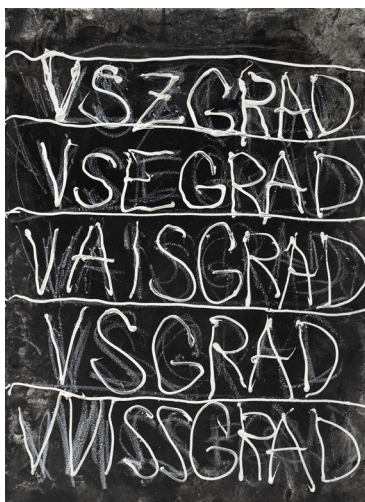 VSZGRAD
VSEGRAD
VAISGRAD
VSGRAD
WISSGRAD